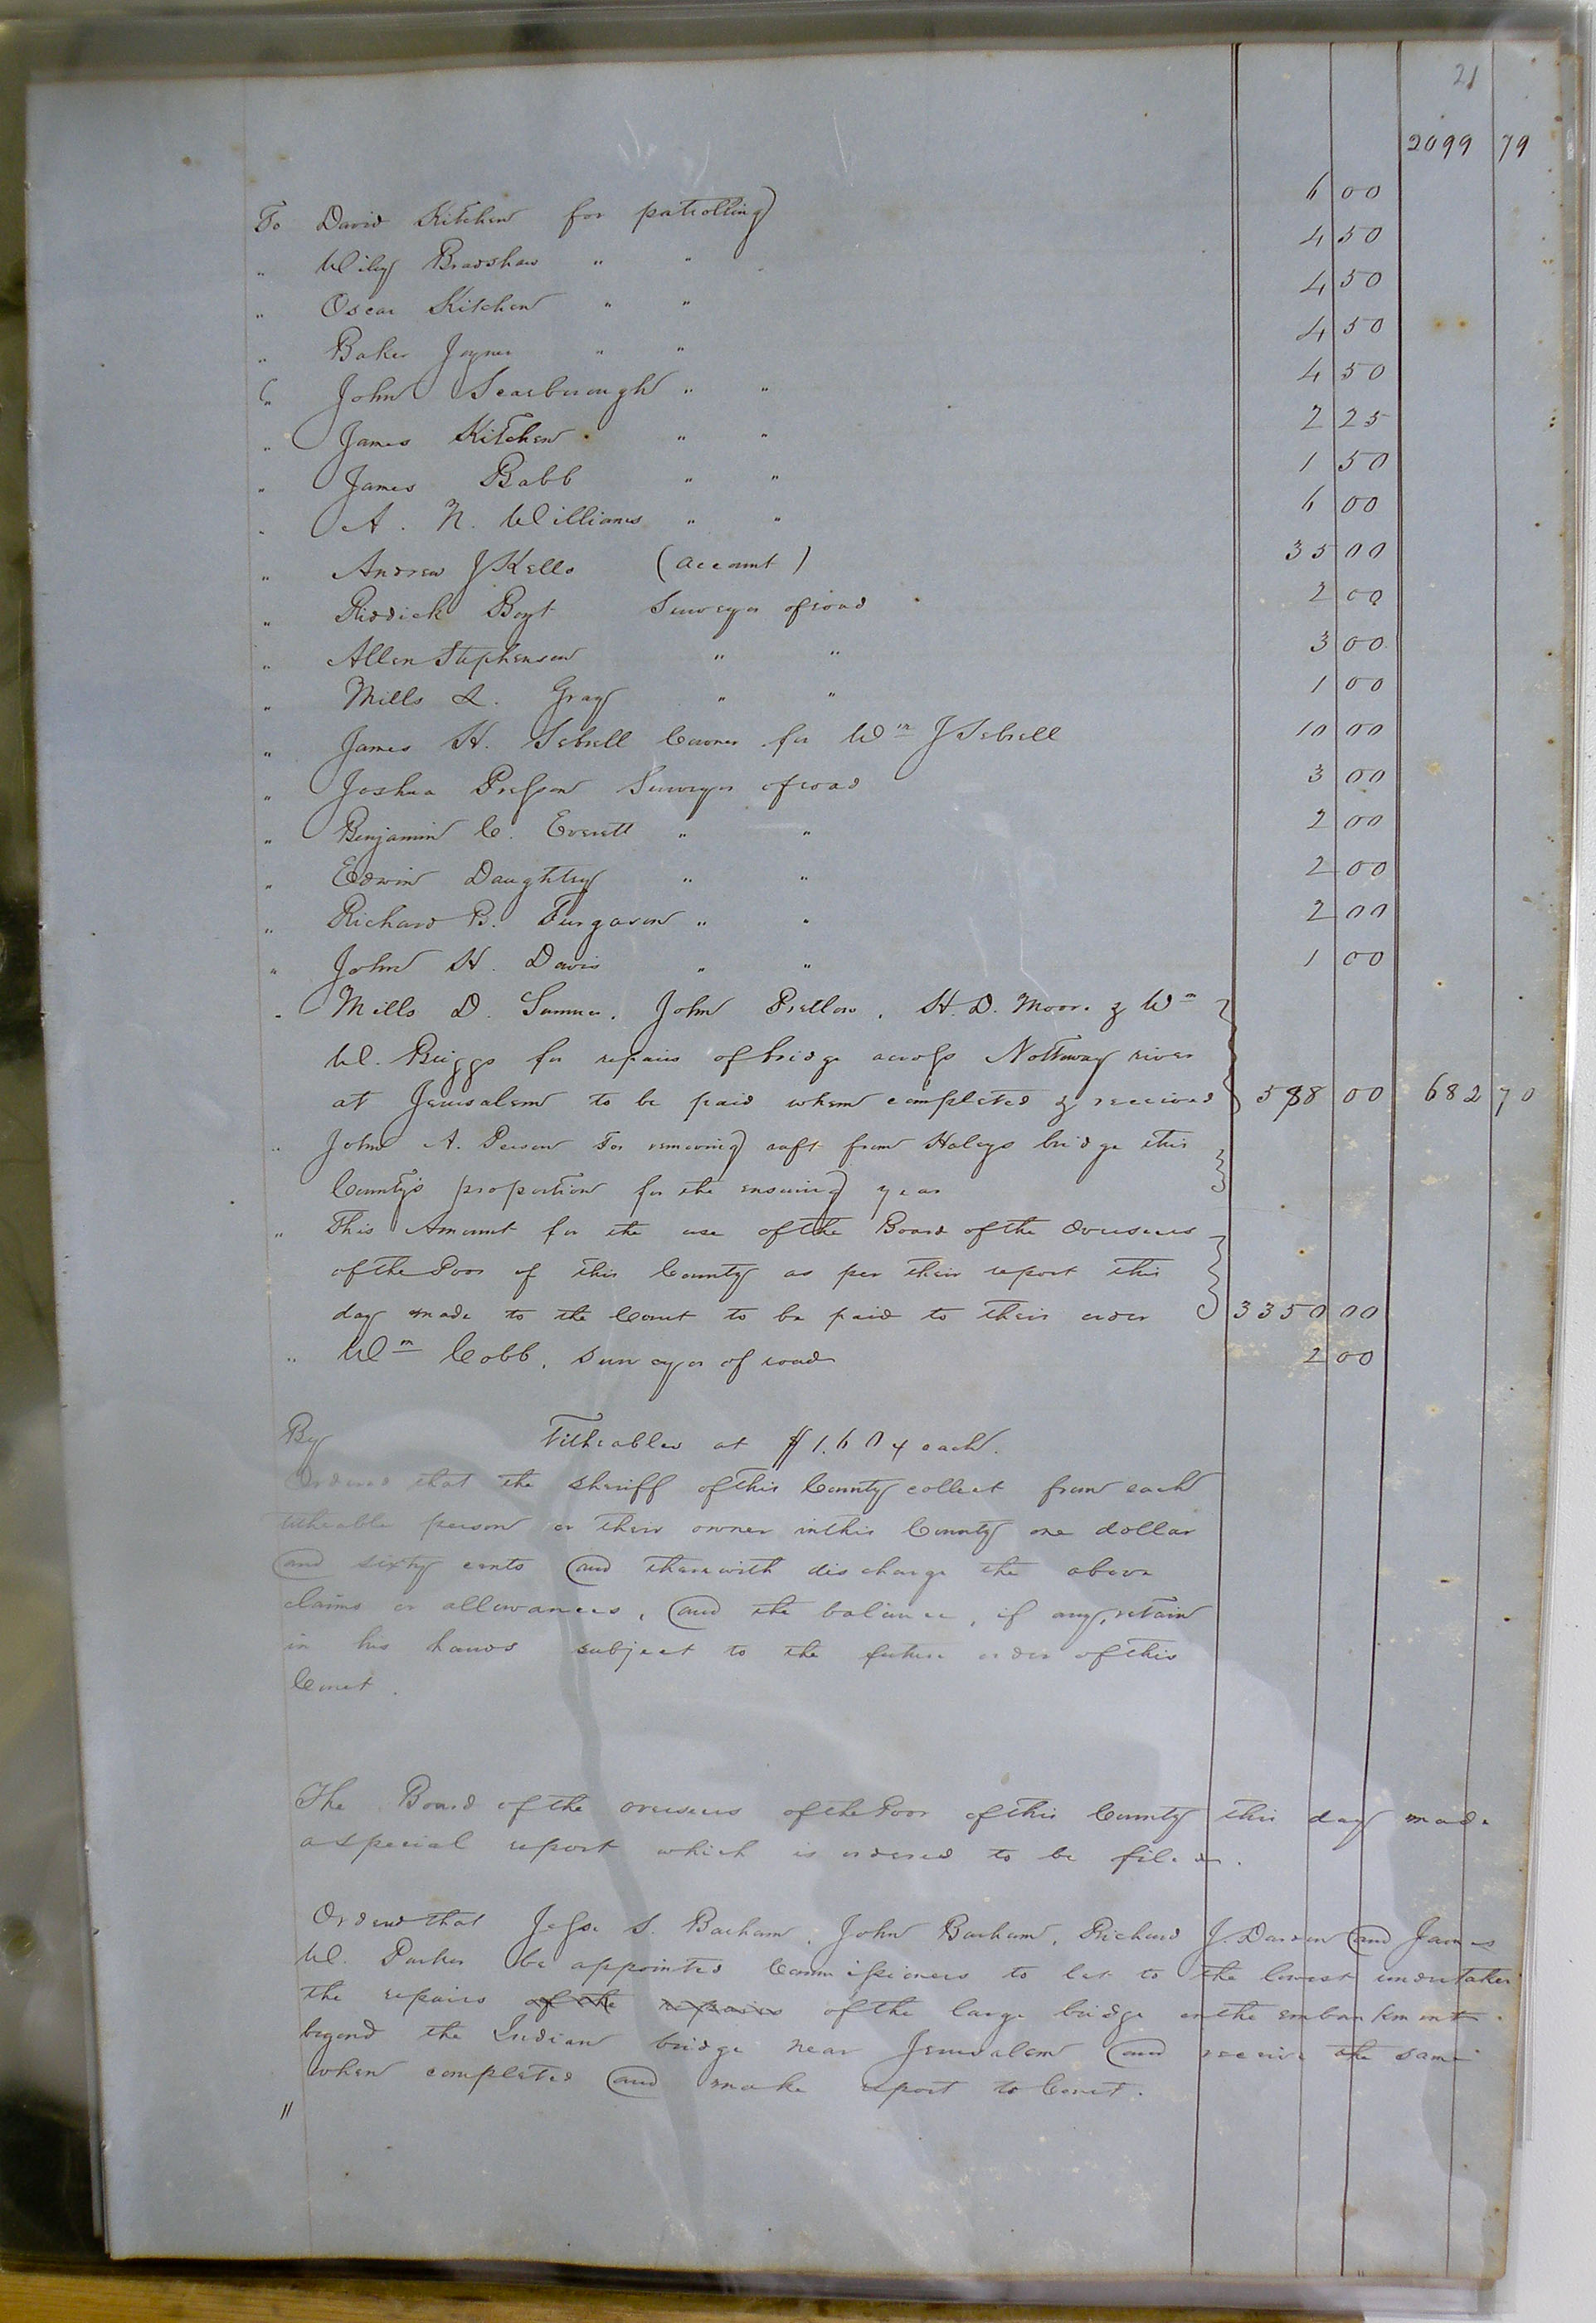 21
2099 79
To David Kitchen for patrolling 6 00
" Wiley Bradshaw " " 4 50
" Oscar Kitchen " " 4 50
" Baker Joyner " " 4 50
" John Scarborough " " 4 50
" James Kitchen " " 2 25
" James Babb " " 1 50
" A. N. Williams " " 6 00
" Andrew J Kello (account) 35 00
" Riddick Boyt Surveyor of road 2 00
" Allen Stephenson " " 3 00
" Mills L. Gray " " 1 00
" James H. Sebrell Coroner for Wm J Sebrell 10 00
" Joshua Presson Surveyor of road 3 00
" Benjamin C. Everett " " 2 00
" Edwin Daughtry " " 2 00
" Richard B. Furgason " " 2 00
" John H. Davis " " 1 00
" Mills D. Sumner, John Pretlow, H. D. Moore & Wm
W. Briggs for repairs of bridge across Nottoway river
at Jerusalem to be paid when completed & received 588 00 682 70
" John A. Person For removing raft from Haleys bridge this
County's proportion for the ensuing year
" This Amount for the use of the Board of the Overseers
of the Poor of this County as per their report this
day made to the Court to be paid to their order 3350 00
" Wm Cobb, surveyor of road 2 00
By Titheables at $1.60 ¢ each.
Ordered that the sheriff of this County collect from each
titheable person or their owner in this County one dollar
and sixty cents and therewith discharge the above
claims or allowances, and the balance, if any, retain
in his hands subject to the future order of this
Court.
The Board of the overseers of the Poor of this County this day made
a special report which is ordered to be filed.
Ordered that Jesse S. Barham, John Barham, Richard J. Darden and James
W. Parker be appointed Commissioners to let to the lowest undertaker
the repairs of the repairs of the large bridge on the embankment
beyond the Indian bridge near Jerusalem and receive the same
when completed and make report to Court.
"